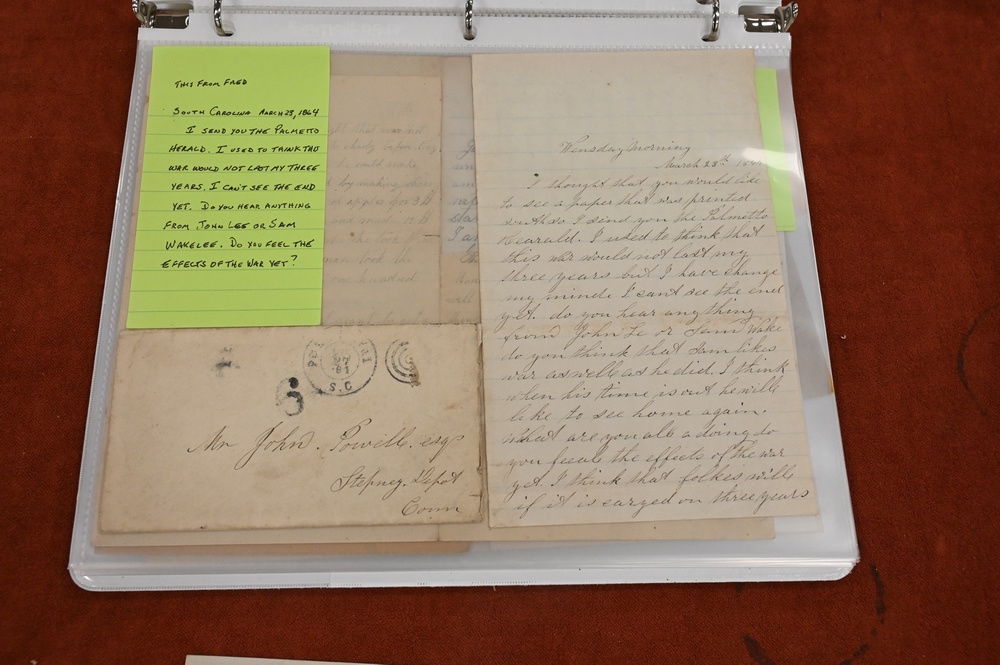 THIS FROM FRED
SOUTH CAROLINA MARCH 23, 1864
I SEND YOU THE PALMETTO
HERALD. I USED TO THINK THIS
WAR WOULD NOT LAST MY THREE
YEARS. I CAN'T SEE THE END
YET. DO YOU HEAR ANYTHING
FROM JOHN LEE OR SAM
WAKELEE. DO YOU FEEL THE
EFFECTS OF THE WAR YET?
S.C
Mr John. Powell. esq
Stepney. Depot
Conn
Wensday Morning
March 23th
I thought that you would like
to see a paper that was printed
south so I send you the Palmetto
Hearald. I used to think that
this war would not last my
three years but I have change
my minde I cant see the end
yet. do you hear any thing
from John Le or Sam Wake
do you think that Sam likes
war as well as he did. I think
when his time is out he will
like to see home again.
What are you all a doing do
you feeale the effects of the war
yet. I think that folkes will
if it is carged on three years